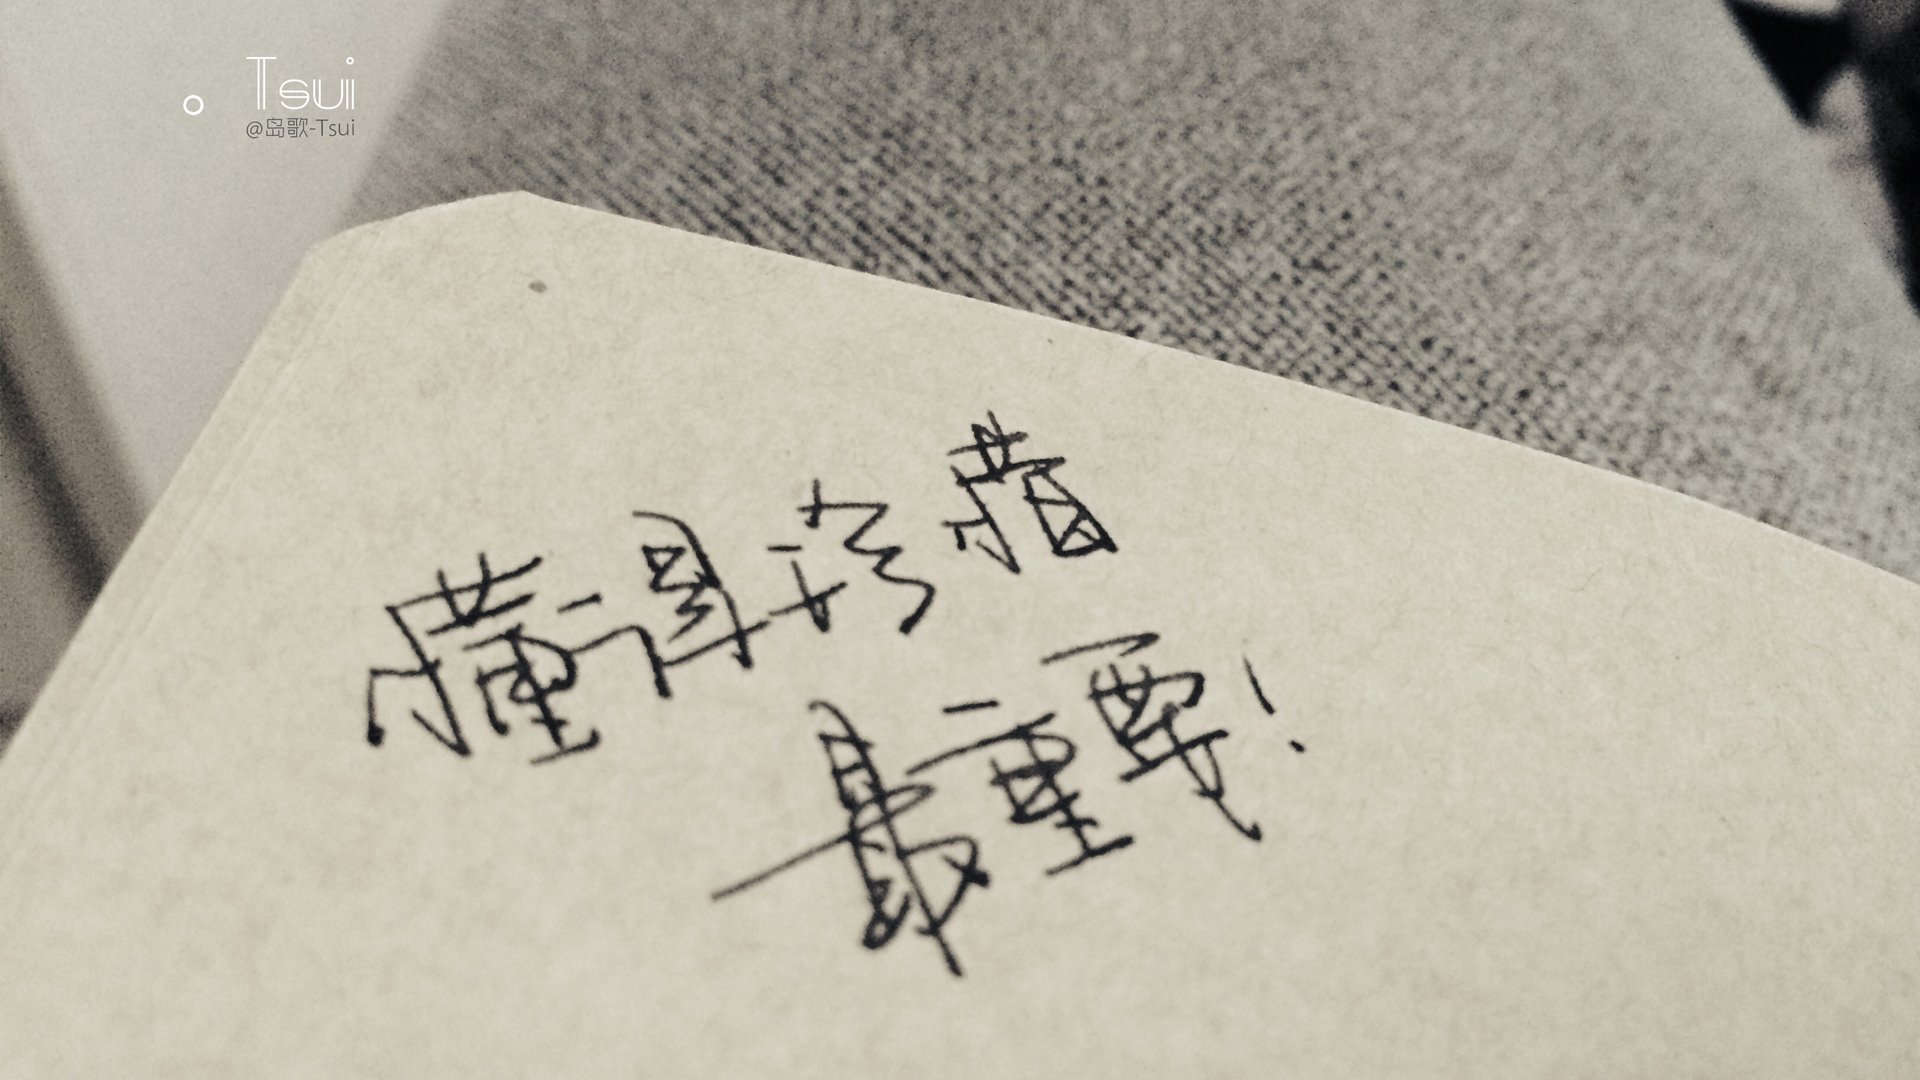 Tsui
@岛歌-Tsui
懂得珍惜
最重要!